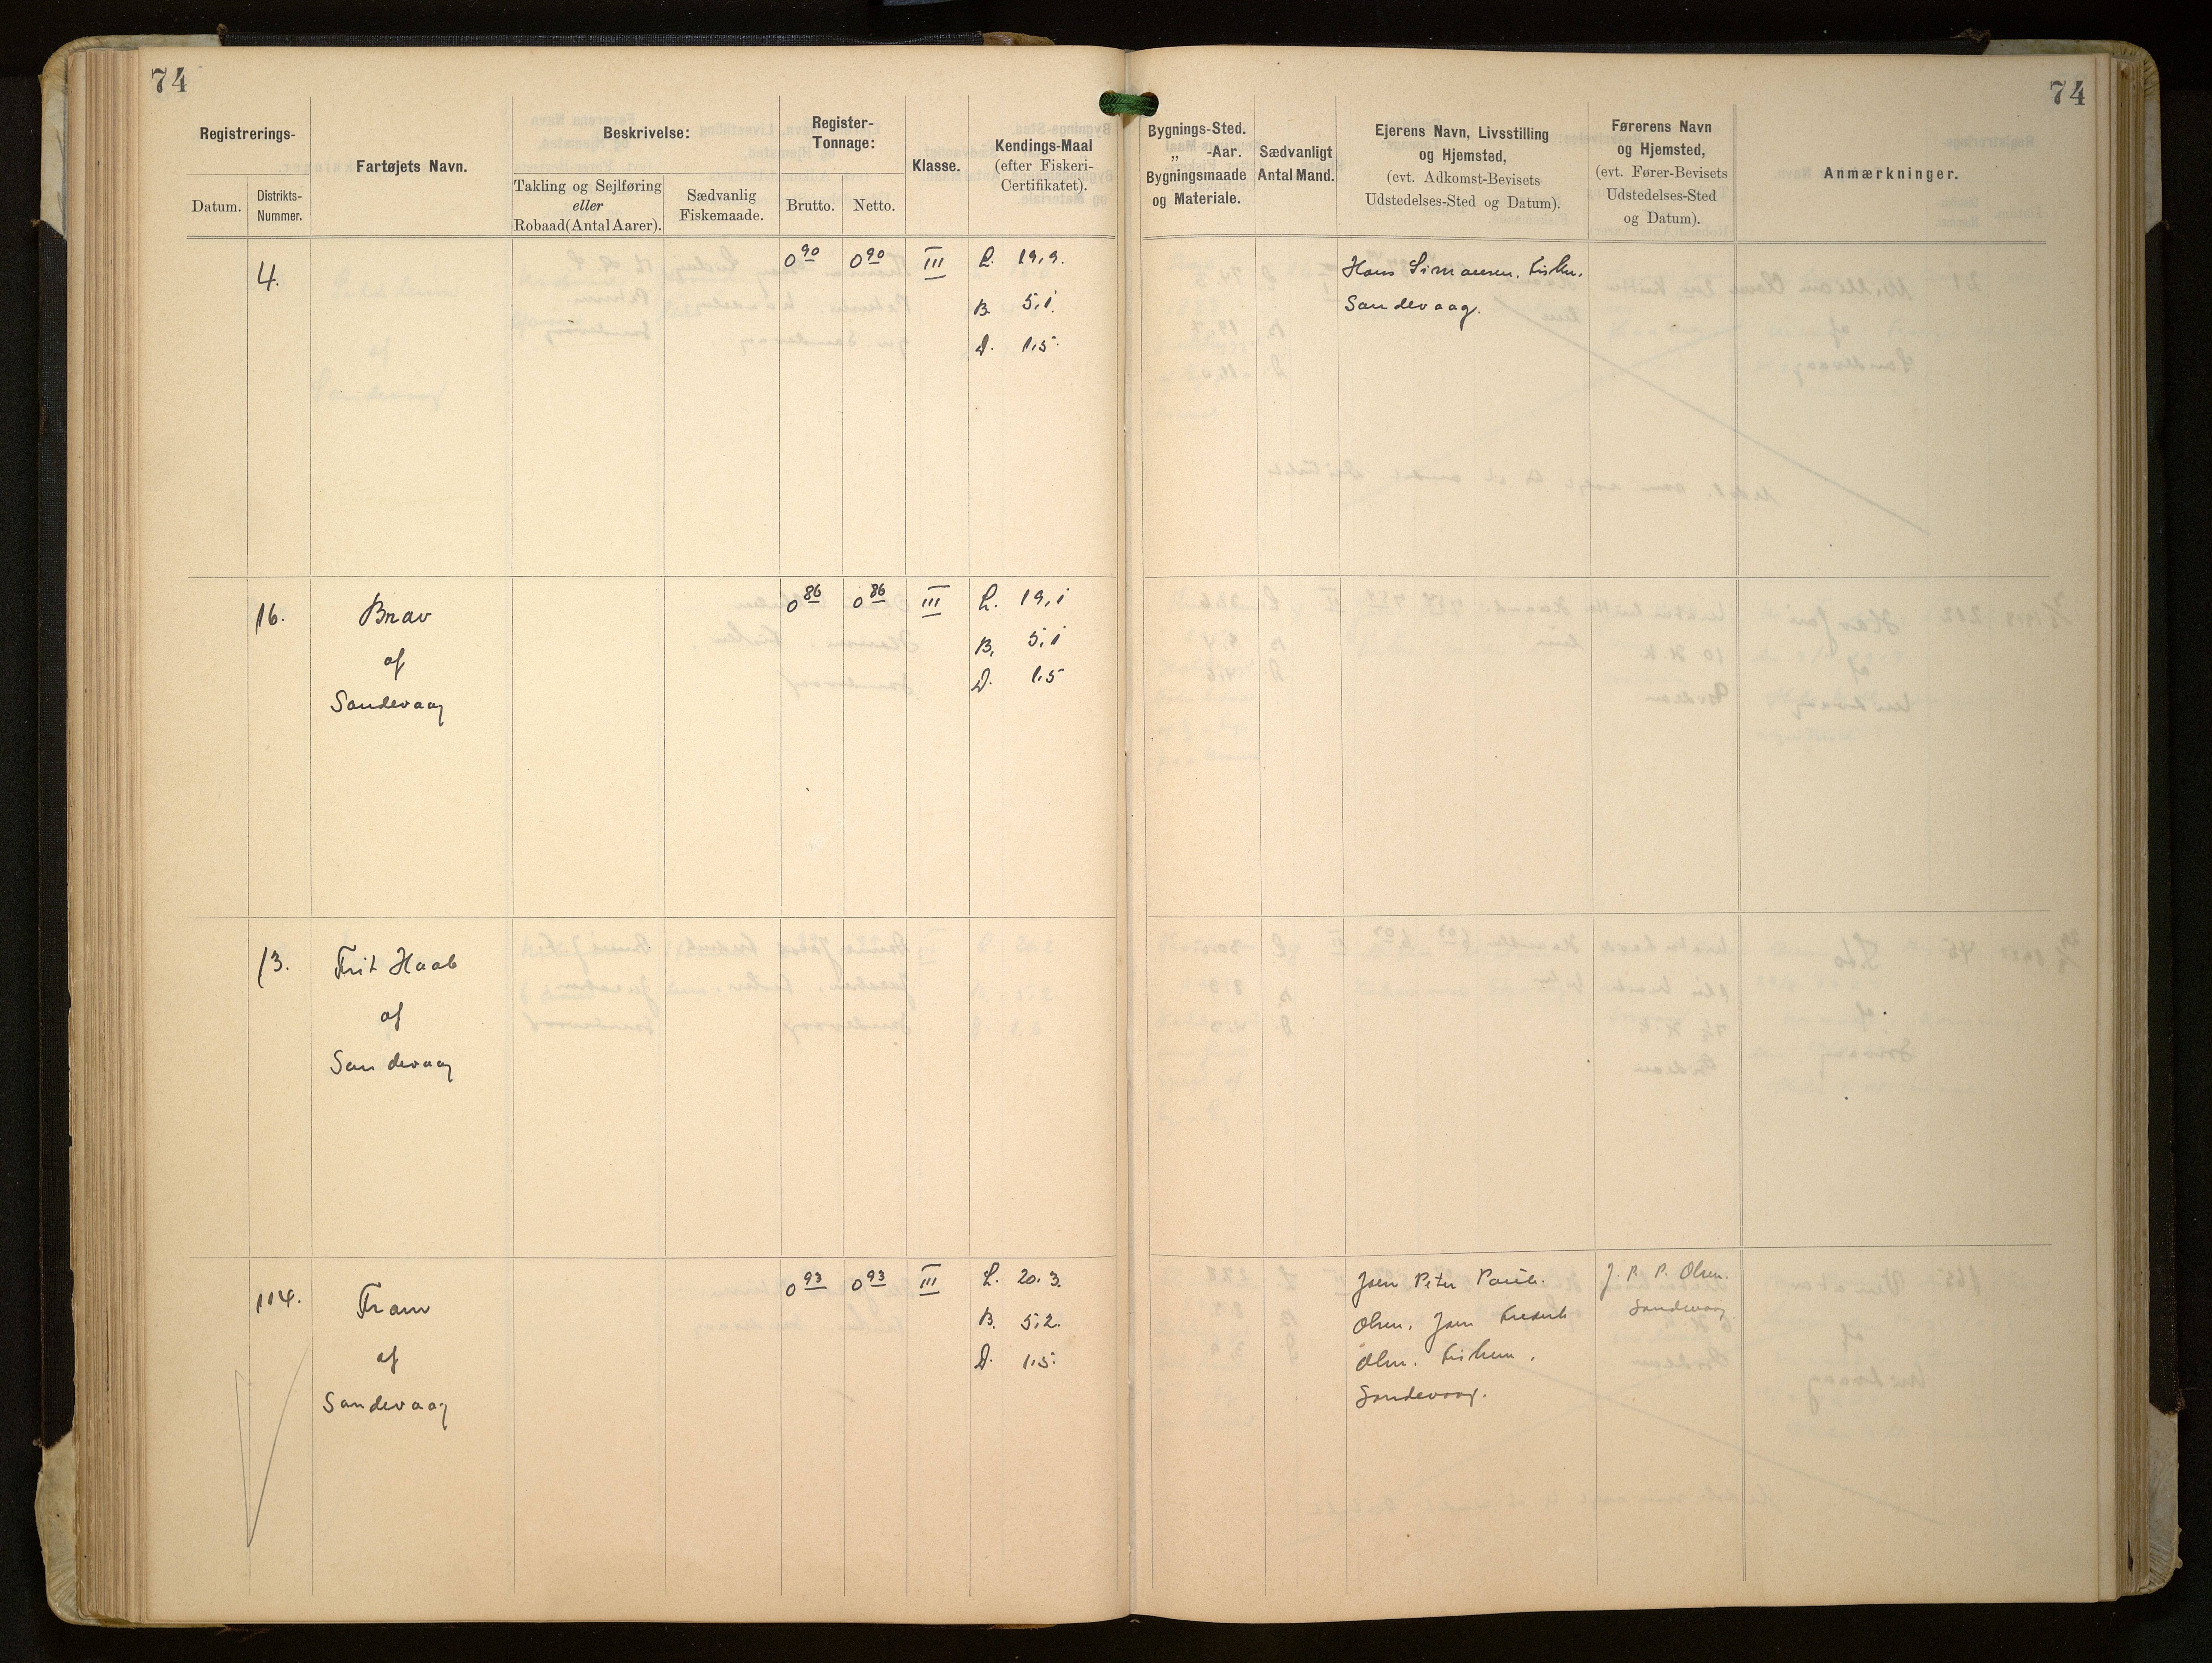 74
74
Registrerings-
Datum.
Distrikts-
Nummer.
Fartøjets Navn.
Beskrivelse:
Takling og Sejlføring
eller
Robaad (Antal Aarer).
Sædvanlig
Fiskemaade.
Register-
Tonnage:
Brutto.
Netto.
Klasse.
Kendings-Maal
(efter Fiskeri-
Certifikatet).
Bygnings-Sted.
„ -Aar.
Bygningsmaade
og Materiale.
Sædvanligt
Antal Mand.
Ejerens Navn, Livsstilling
og Hjemsted,
(evt. Adkomst-Bevisets
Udstedelses-Sted og Datum).
Førerens Navn
og Hjemsted,
(evt. Fører-Bevisets
Udstedelses-Sted
og Datum).
Anmærkninger.
4. 0 90 0 90 III L. 19,9.
B. 5,1.
D. 1,5.
Hans Simonsen. Fisker.
Sandevaag.
16. Brav 0 86 0 86 III L. 19,1
af B. 5,1
Sandevaag D. 1,5
13. Frit Haab
af
Sandevaag
114. Fram 0 93 0 93 III L. 20,3.
af B. 5,2.
Sandevaag D. 1,5.
Joen Peter Pauli.
Olsen. Joen Frederik
Olsen. Fisker.
Sandevaag.
J. P. P. Olsen.
Sandevaag